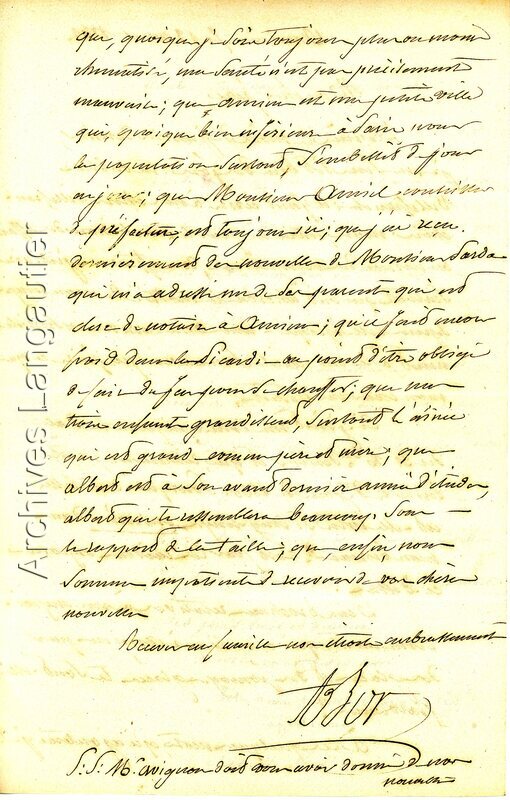 que, quoique je sois toujours plus ou moins
rhumatisé, ma santé n'est pas précisément
mauvaise ; que Amiens est une petite ville
qui, quoique bien inférieure à Paris pour
la population surtout, s'embellit de jour
en jour ; que Monsieur conseiller
de préfecture, est toujours ici ; que j'ai reçu
dernièrement des nouvelles de Monsieur Sarda
qui m'a adressé un de ses parents qui est
clerc de notaire à Amiens ; qu'il fait encore
froid dans la Picardie au point d'être obligé
de faire du feu pour se chauffer ; que mes
trois enfants grandissent, surtout l'aînée
qui est grande comme père et mère ; que
Albert est à son avant dernière année d'études,
Albert qui te ressemblera beaucoup sous
le rapport de la taille ; que, enfin, nous
sommes impatients de recevoir de vos chères
nouvelles
Recevez en famille nos étroits embrassements
ABor
P.S. Mr Avignon doit vous avoir donné de nos
nouvelles
Archives Langautier